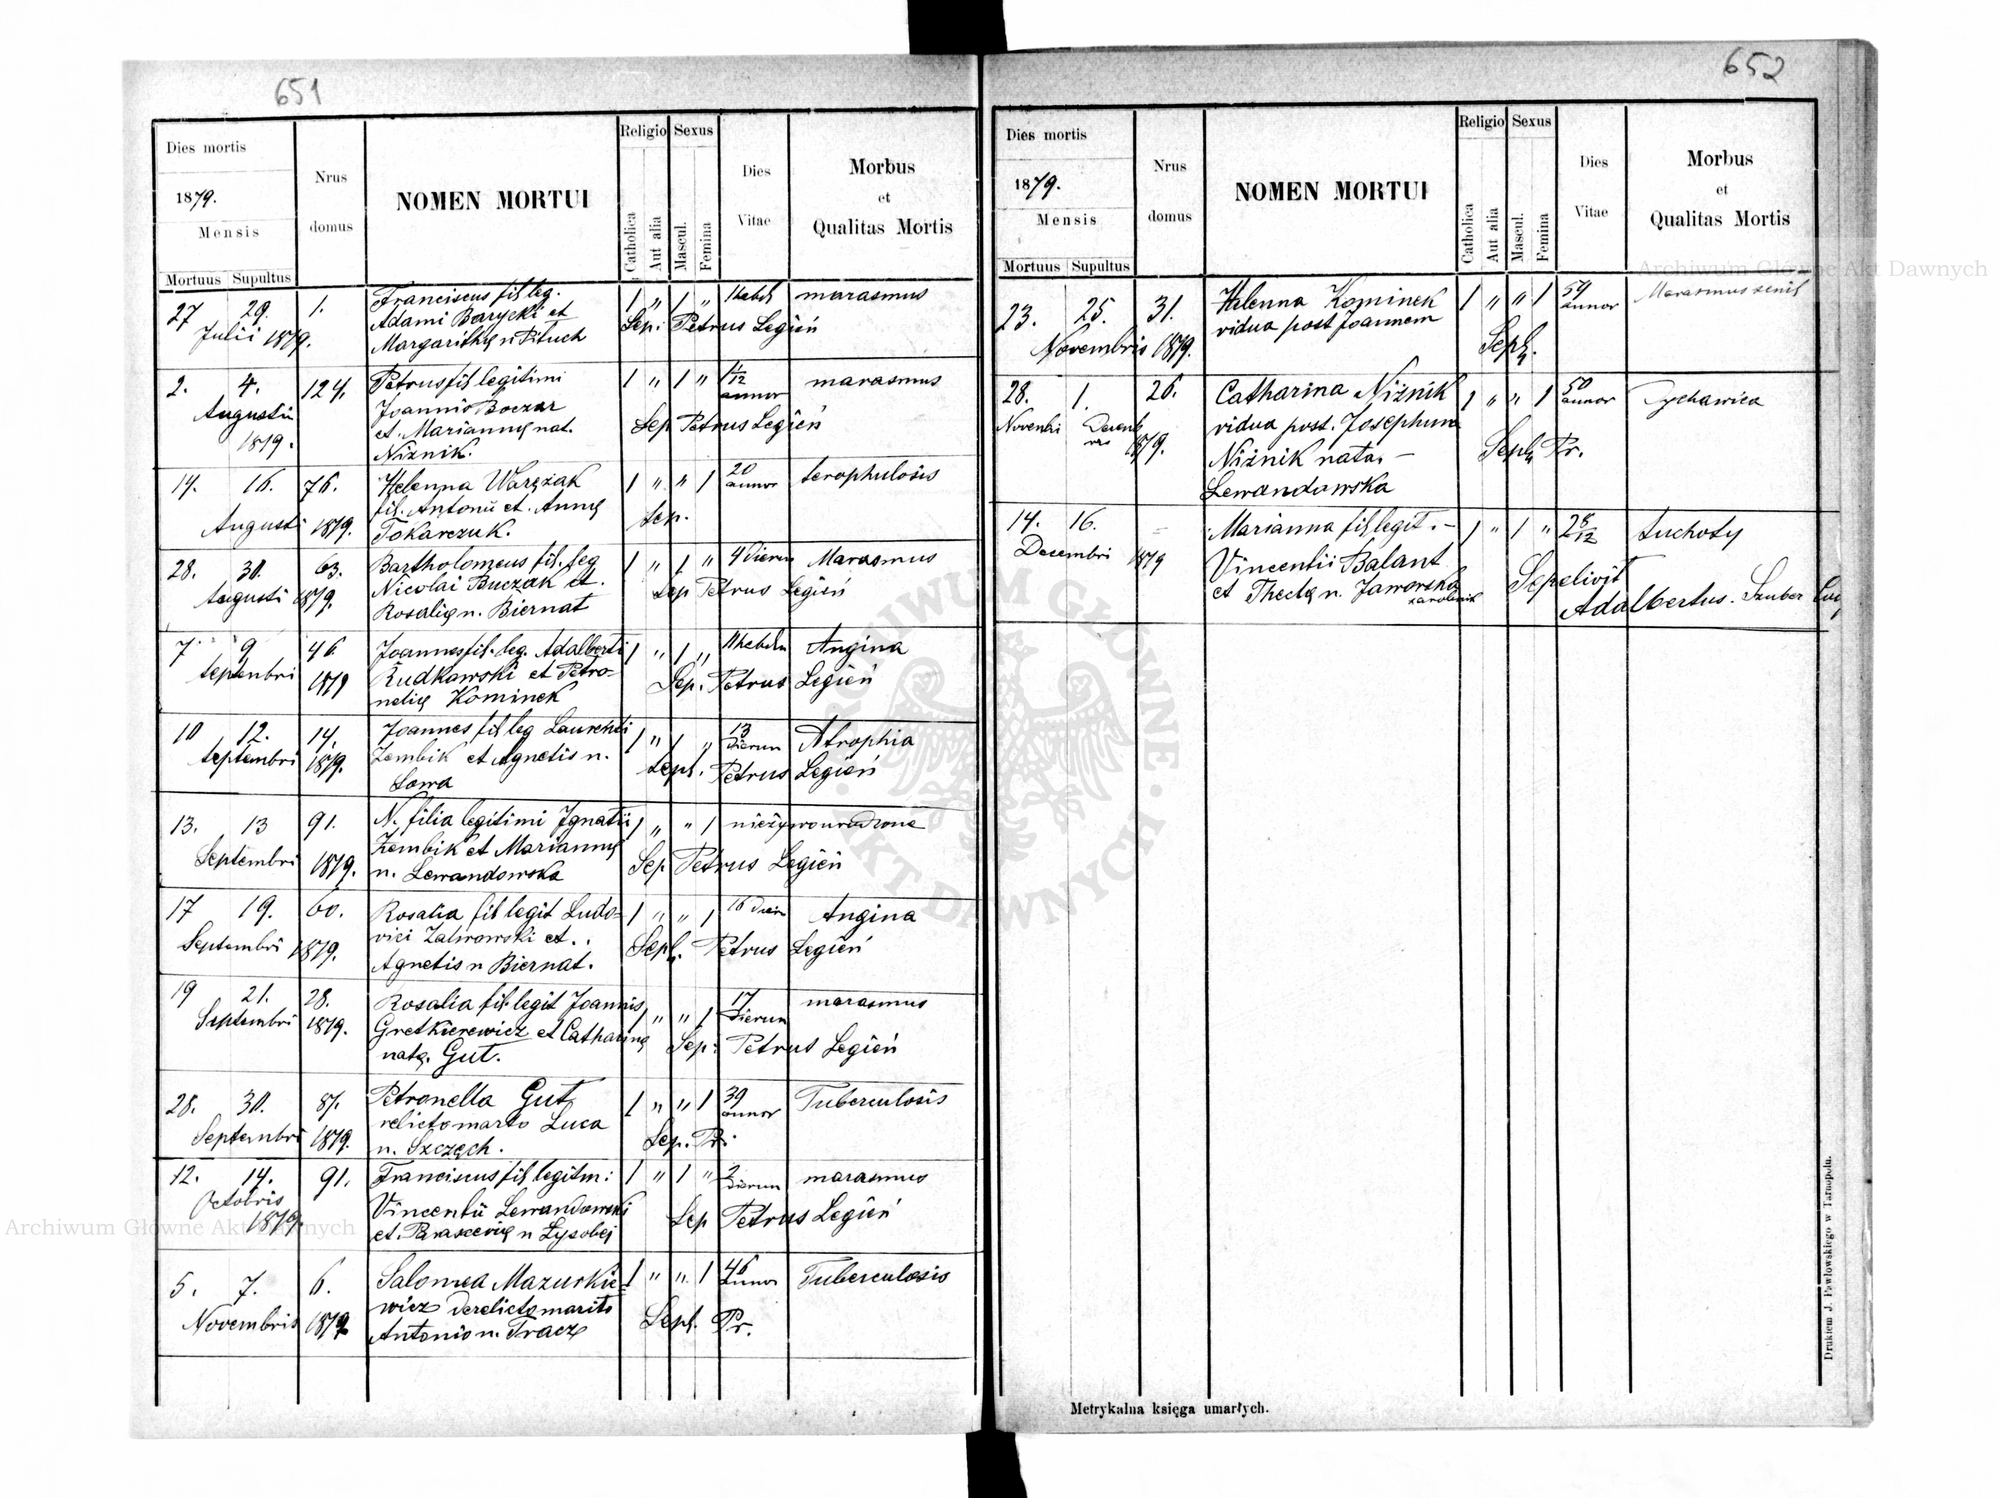 651
Dies mortis
1879.
Mensis
Mortuus Supultus
Nrus
domus
NOMEN MORTUI
Religio
Catholica
Aut alia
Sexus
Mascul.
Femina
Dies
Vitae
Morbus
et
Qualitas Mortis
27 29. 1. Franciscus fil leg. 1 " 1 " marasmus
Julii 1879. Adami Barycki et Sep: Petrus Legień
Margarithę n Pituch
2. 4. 124. Petrus fil legitimi 1 " 1 " 1/12 annor marasmus
Augusti Joannis Boczar Sep Petrus Legień
1879. et. Mariannę nat.
Niżnik.
14. 16. 76. Helenna Warężak 1 " " 1 20 annor scrophulosis
Augusti 1879. fil. Antonii et. Annę Sep.
Tokarczuk.
28. 30. 63. Bartholomeus fil. leg 1 " 1 " 4 Dierum Marasmus
Augusti 1879. Nicolai Buczak et. Sep Petrus Legień
Rosalię n. Biernat
7 9 46 Joannes fil. leg. Adalberti 1 " 1 " Angina
Septembri 1879 Rudkowski et Petro- Sep. Petrus Legień
nelię Kominek
10 12. 14. Joannes fil leg Laurenti 1 " 1 " 13 Dierum Atrophia
Septembri 1879. Zembik et Agnetis n. Sepl. Petrus Legień
Sowa
13. 13 91. N. filia legitimi Ignatii 1 " " 1 nieżywourodzone
Septembri 1879. Zembik et Mariannę Sep Petrus Legień
n. Lewandowska
17 19. 60. Rosalia fil legit Ludo- 1 " " 1 16 Dier Angina
Septembri 1879. vici Zalwowski et. Sepl. Petrus Legień
Agnetis n Biernat.
19 21. 28. Rosalia fil. legit Joannis 1 " " 1 17 Dierum marasmus
Septembri 1879. Gretkierewicz et Catharinę Sep: Petrus Legień
natę. Gut.
28. 30. 87. Petronella Gut 1 " " 1 39 annor Tuberculosis
Septembri 1879. relicto marto Luca Sep. Pr.
n. Szczęch.
12. 14. 91. Franciscus fil legitm: 1 " 1 " 2 Dierum marasmus
Octobris Vincentii Lewandowski Sep Petrus Legień
1879. et. Parascevię n Łysobej
5. 7. 6. Salomea Mazurkie- 1 " " 1 46 annor Tuberculosis
Novembris 1879 wicz derelicto marito Sepl. Pr.
Antonio n. Tracz
652
Dies mortis
1879.
Mensis
Mortuus Supultus
Nrus
domus
NOMEN MORTUI
Religio
Catholica
Aut alia
Sexus
Mascul.
Femina
Dies
Vitae
Morbus
et
Qualitas Mortis
23. 25. 31. Helenna Kominek 1 " " 1 59 annor Marasmus senil
Novembris 1879. vidua post Joannem Sepl.
28. 1. 26. Catharina Niżnik 1 " " 1 50 annor Dychawica
Novembri Decembris 1879. vidua post. Josephum Sepl. Pr.
Niżnik nata. —
Lewandowska
14. 16. Marianna fil legit. — 1 " 1 " Suchoty
Decembri 1879 Vincentii Balant Sepelivit
et Theclę n. Jaworska Adalbertus. Szuber
Archiwum Główne Akt Dawnych
Archiwum Główne Akt Dawnych
ARCHIWUM GŁÓWNE · AKT DAWNYCH ·
Drukiem J. Pawłowskiego w Tarnopolu.
Metrykalna księga umarłych.